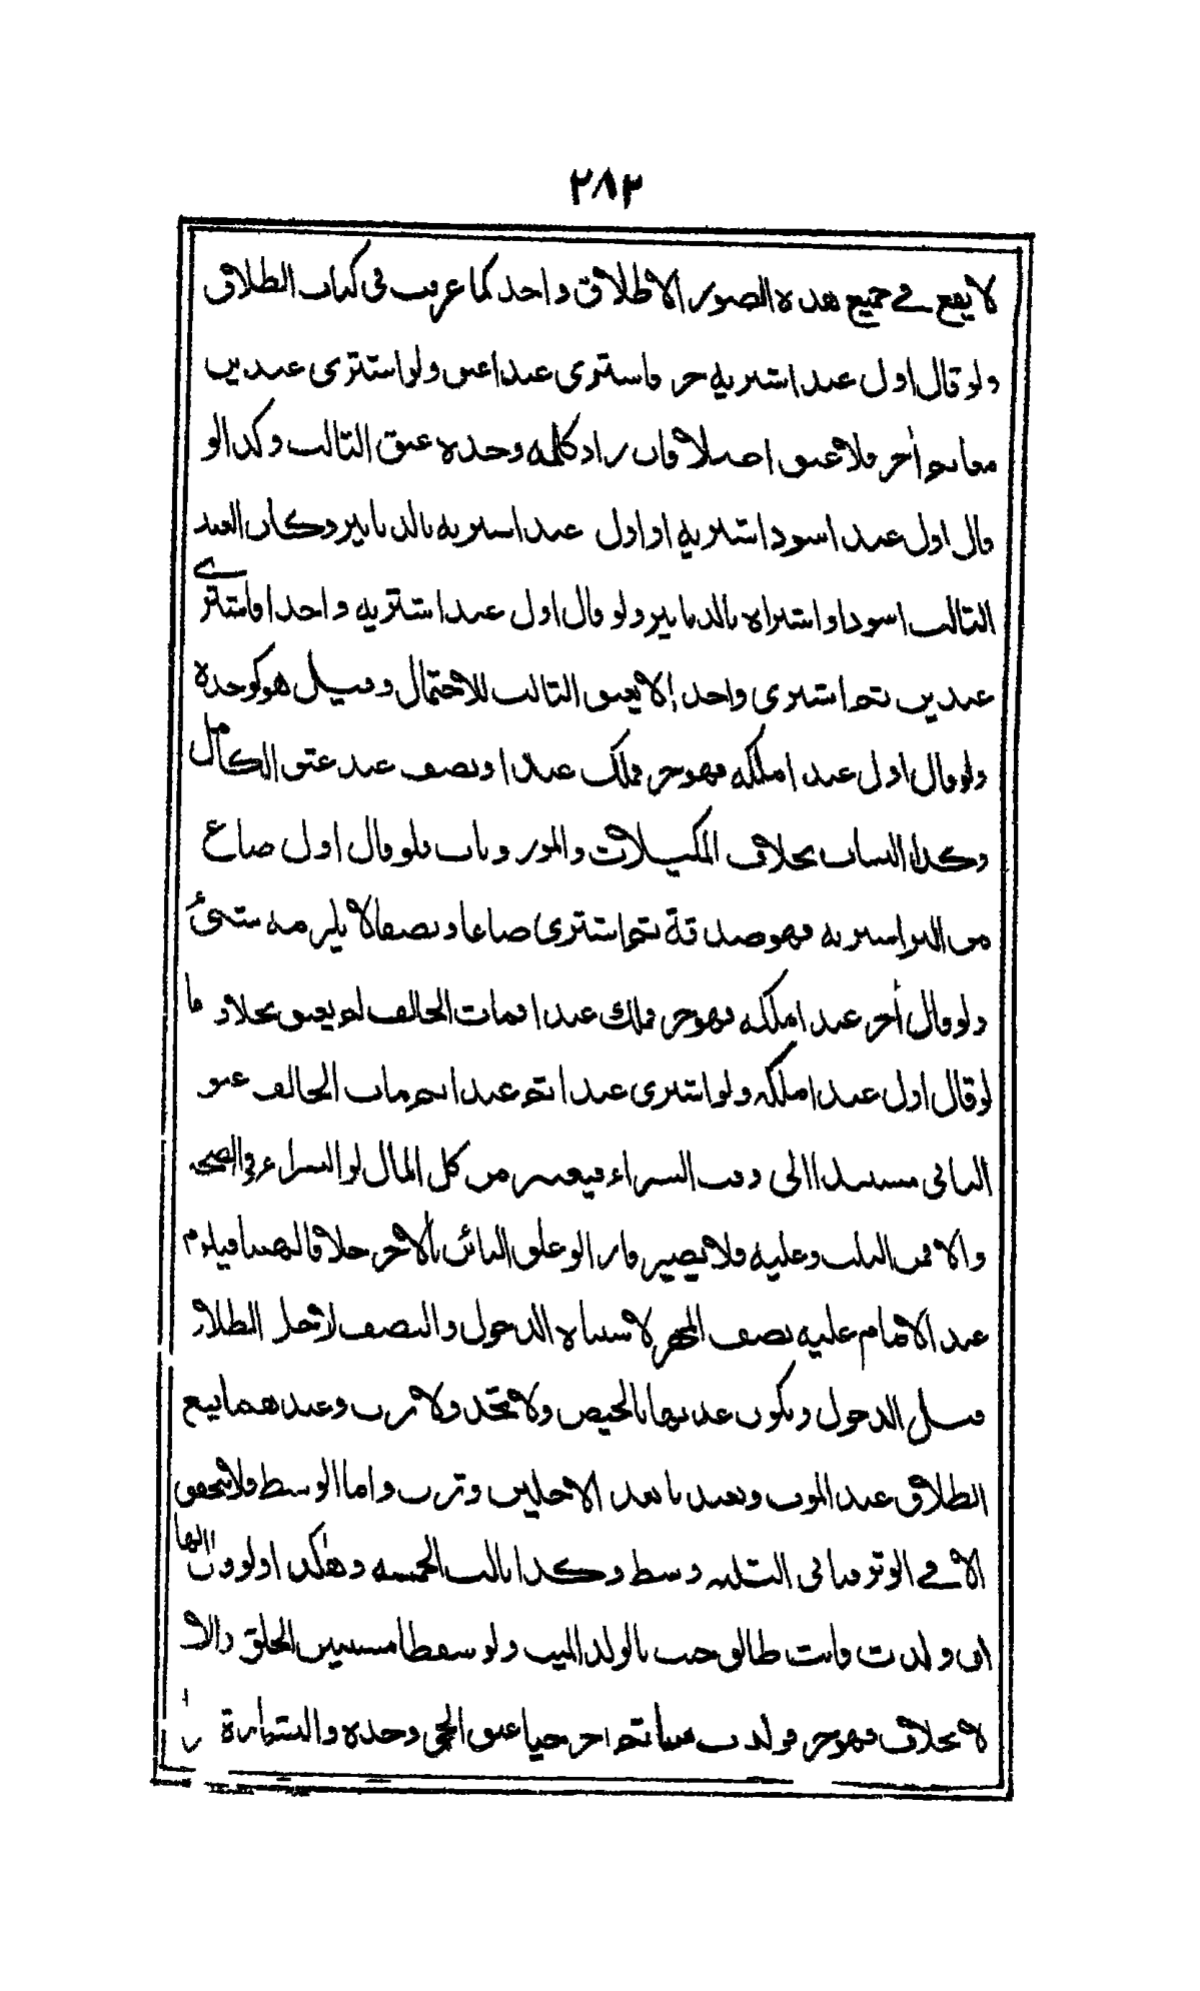 ٢٨٣
لا يقع في جميع هذه الصور الا طلاق واحد كما عرفت في كتاب الطلاق
ولو قال اول عبد اشتريه حر فاشترى عبدا عتق ولو اشترى عبدين
معا ثم أخر فلا عتق اصلا فان زاد كلمة وحده عتق الثالث وكذا لو
قال اول عبد اسود اشتريه او اول عبد اشتريه بالدنانير وكان العبد
الثالث اسود او اشتراه بالدنانير ولو قال اول عبد اشتريه واحدا فاشترى
عبدين ثم اشترى واحدا لا يعتق الثالث للاحتمال وقيل هو كوحده
ولو قال اول عبد املكه فهو حر فملك عبدا ونصف عبد عتق الكامل
وكذا الثياب بخلاف المكيلات والموزونات فلو قال اول صاع
من البر اشتريه فهو صدقة ثم اشترى صاعا ونصفا لا يلزمه شئ
ولو قال أخر عبد املكه فهو حر فملك عبدا فمات الحالف لم يعتق بخلاف ما
لو قال اول عبد املكه ولو اشترى عبدا ثم عبدا ثم مات الحالف عتق
الثاني مستندا الى وقت الشراء فيعتبر من كل المال لو الشراء في الصحة
والا فمن الثلث وعليه فلا يصير فارا لو علق البائن بالاخر خلافا لهما فيلزم
عند الامام عليه نصف المهر لاشتباه الدخول والنصف لاجل الطلاق
قبل الدخول وتكون عدتها بالحيض ولا تحد ولا ترث وعندهما يقع
الطلاق عند الموت وتعتد بابعد الاجلين وترث واما الوسط فلا يتحقق
الا في الوتر فثاني الثلثه وسط وكذا ثالث الخمسه وهكذا ولو قال لها
ان ولدت فانت طالق حنث بالولد الميت ولو سقطا مستبين الخلق والا
لا بخلاف فهو حر فولدت ميتا ثم اخر حيا عتق الحي وحده والبشارة